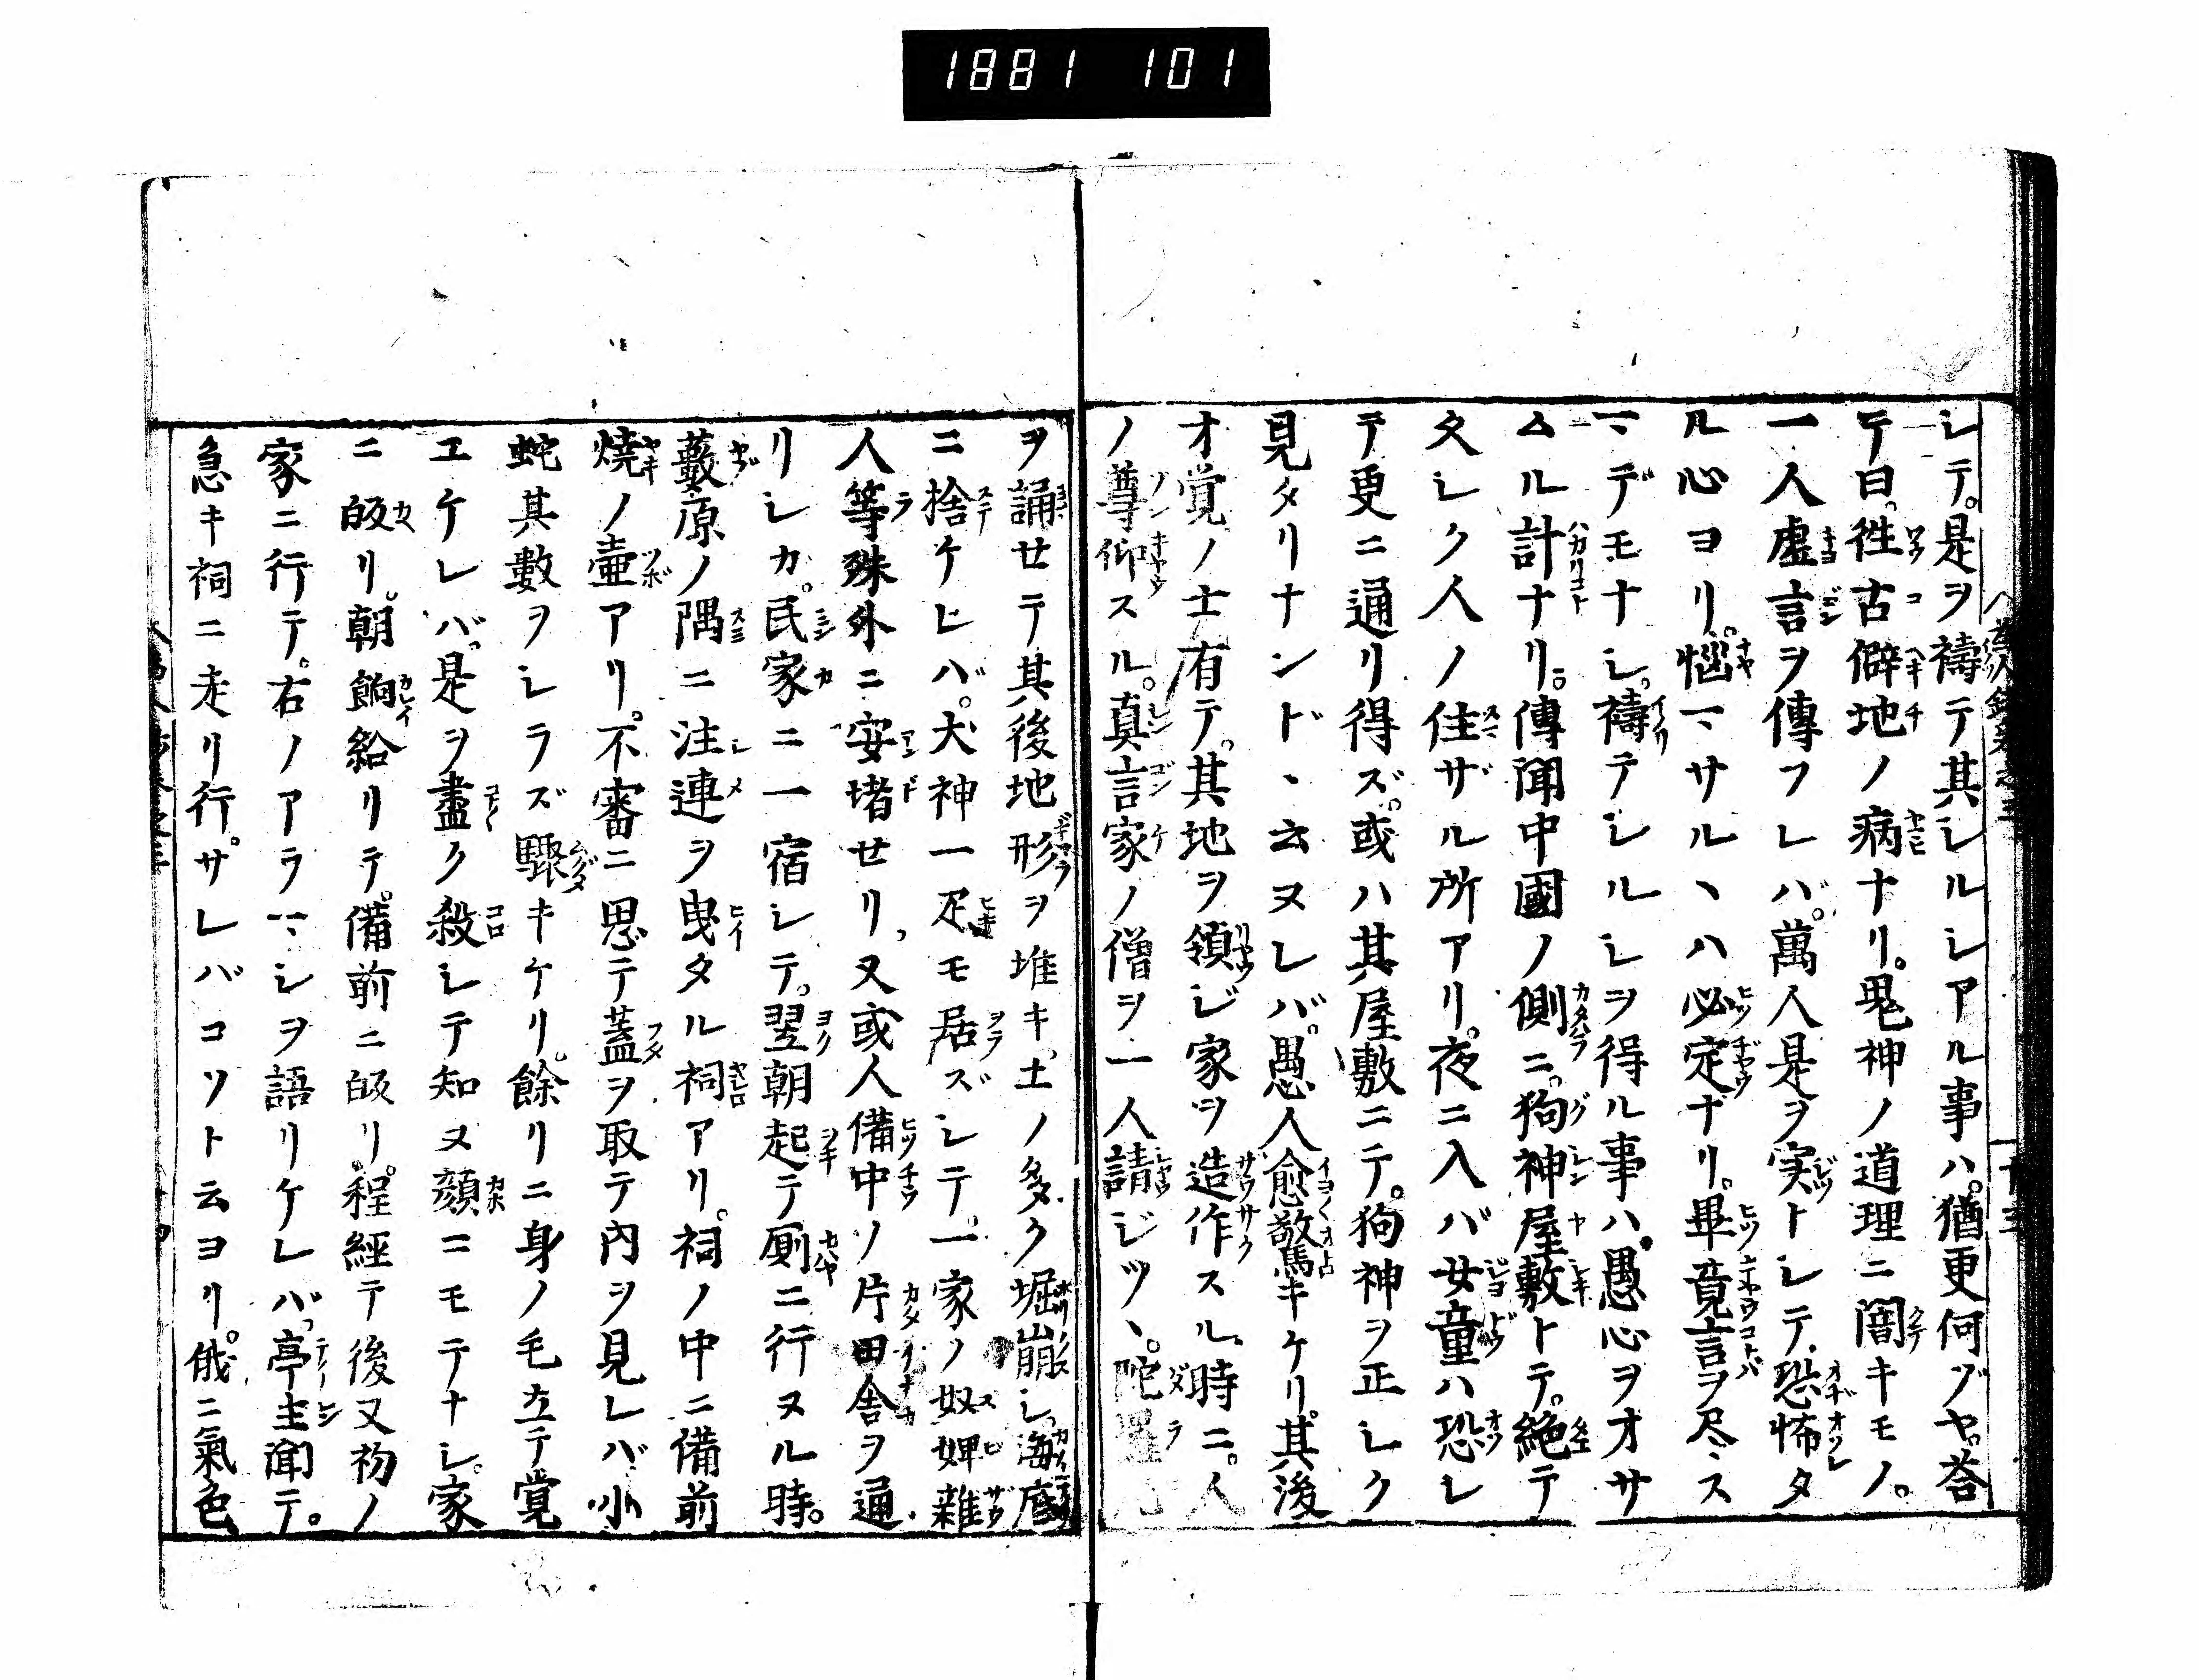 1881 101
シテ。是ヲ禱テ其シルシアル事ハ。猶更何ゾヤ。荅
テ曰。徃古僻地ノ病ナリ。鬼神ノ道理ニ闇キモノ。
一人虚言ヲ傳フレバ。萬人是ヲ実トシテ。恐怖タ
ル心ヨリ。悩マサルヽハ必定ナリ。畢竟言ヲ尽ス
マデモナシ。禱テシルシヲ得ル事ハ。愚心ヲオサ
ムル計ナリ。傳聞中國ノ側ニ。狗神屋敷トテ。絶テ
久シク人ノ住ザル所アリ。夜ニ入バ女童ハ恐レ
テ更ニ通リ得ズ。或ハ其屋敷ニテ。狗神ヲ正シク
見タリナンドヽ云ヌレバ。愚人愈敬馬キケリ。其後
才覚ノ士有テ。其地ヲ領ジ家ヲ造作スル時ニ。人
ノ尊仰スル。真言家ノ僧ヲ一人請ジツヽ。陀羅尼
ヲ誦せテ其後地形ヲ堆キ。土ノ多ク堀崩シ。海底
ニ捨ケレバ。犬神一疋モ居ズシテ。一家ノ奴婢雜
人等殊外ニ安堵せリ。又或人備中ノ片田舎ヲ通
リシカ。民家ニ一宿シテ。翌朝起テ厠ニ行ヌル時。
藪原ノ隅ニ注連ヲ曳タル祠アリ。祠ノ中ニ備前
燒ノ壷アリ。不審ニ思テ蓋ヲ取テ内ヲ見レバ。小
蛇其數ヲシラズ驟キケリ。餘リニ身ノ毛立テ覚
エケレバ。是ヲ盡ク殺シテ知ヌ顔ニモテナシ。家
ニ皈リ。朝餉給リテ。備前ニ皈リ。程經テ後又初ノ
家ニ行テ。右ノアラマシヲ語リケレバ。亭主聞テ。
急キ祠ニ走リ行。サレバコソト云ヨリ。俄ニ氣色